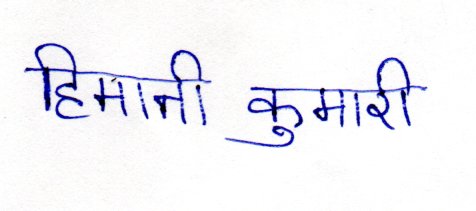 हिमानी कुमारी